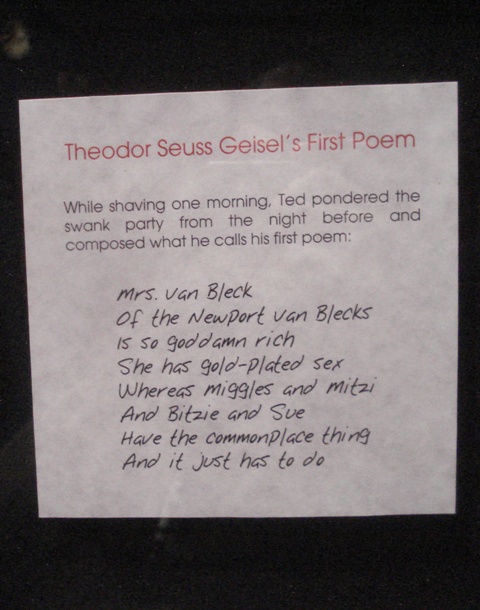 Theodor Seuss Geisel's First Poem
While shaving one morning, Ted pondered the
swank party from the night before and
composed what he calls his first poem:
Mrs. Van Bleck
Of the Newport Van Blecks
Is so goddamn rich
She has gold-plated sex
Whereas Miggles and Mitzi
And Bitzie and Sue
Have the commonplace thing
And it just has to do